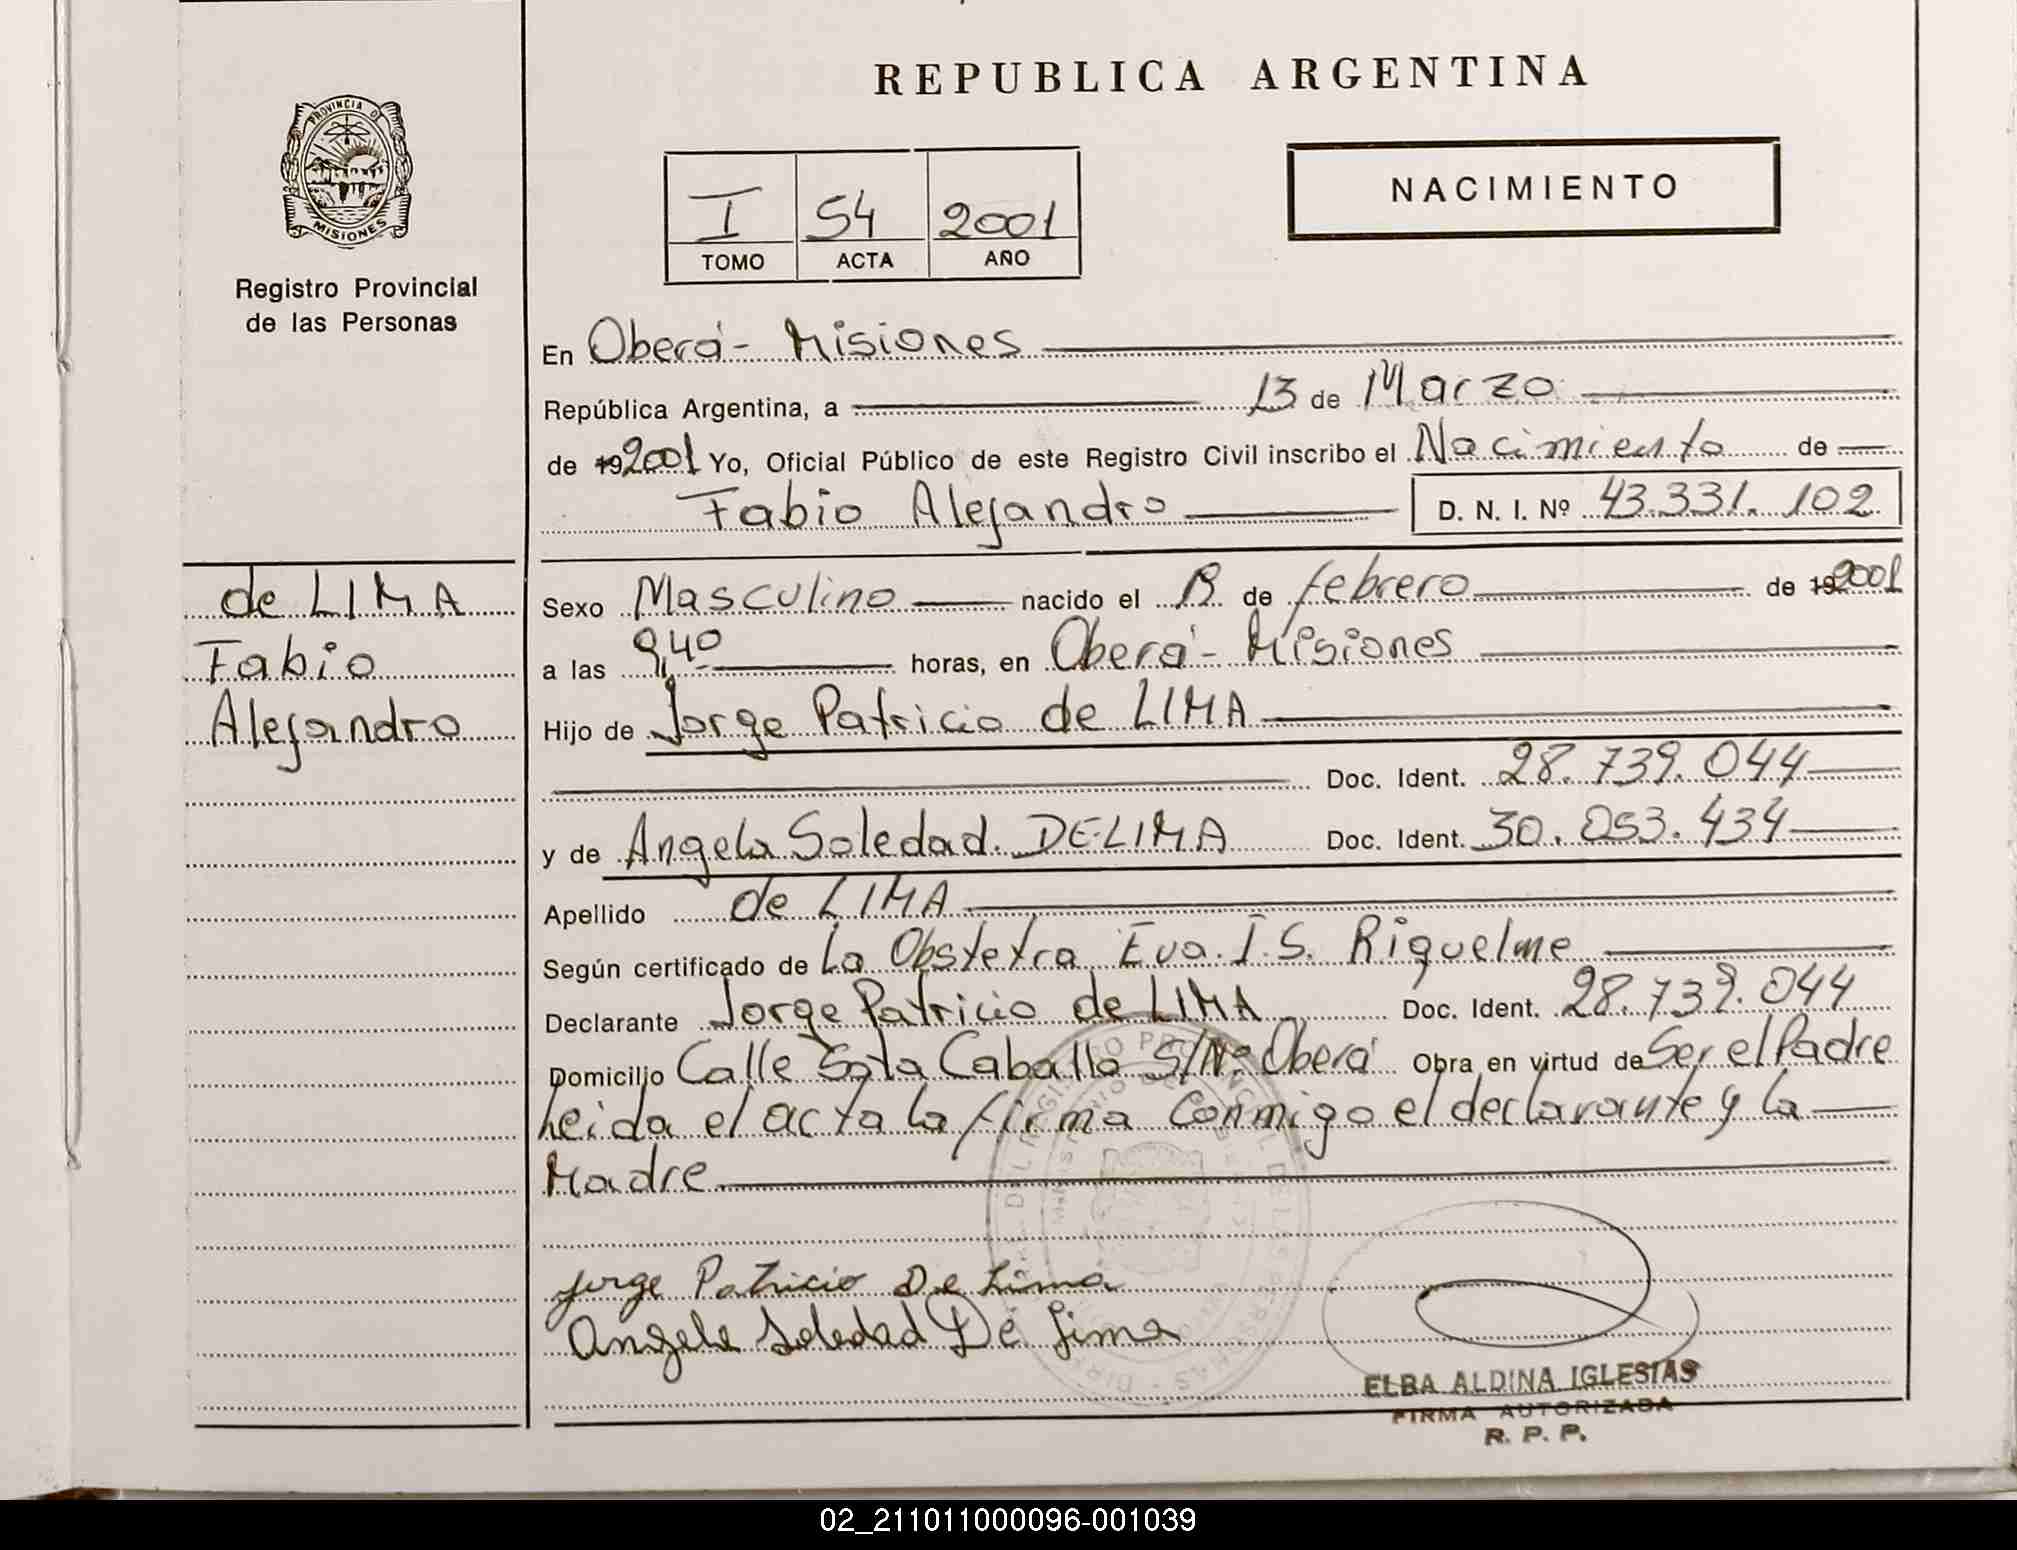 REPUBLICA ARGENTINA
PROVINCIA D
MISIONES
Registro Provincial
de las Personas
I 54 2001
TOMO ACTA AÑO
NACIMIENTO
En Oberá - Misiones
República Argentina, a 13 de Marzo
de 19 2001 Yo, Oficial Público de este Registro Civil inscribo el Nacimiento de
Fabio Alejandro D. N. I. Nº 43.331.102
de LIMA
Fabio
Alejandro
Sexo Masculino nacido el de febrero de 19 2001
a las 9,40 horas, en Oberá - Misiones
Hijo de Jorge Patricio de LIMA
Doc. Ident. 28.739.044
y de Angela Soledad DE LIMA Doc. Ident. 30.053.434
Apellido de LIMA
Según certificado de La Obstetra Eva. I. S. Riquelme
Declarante Jorge Patricio de LIMA Doc. Ident. 28.739.044
Domicilio Calle Caballo S/Nº Oberá Obra en virtud de Ser el Padre
Leida el acta la firma conmigo el declarante y la
Madre
Jorge Patricio De Lima
Angela Soledad De Lima
ELBA ALDINA IGLESIAS
FIRMA AUTORIZADA
R. P. P.
02_211011000096-001039